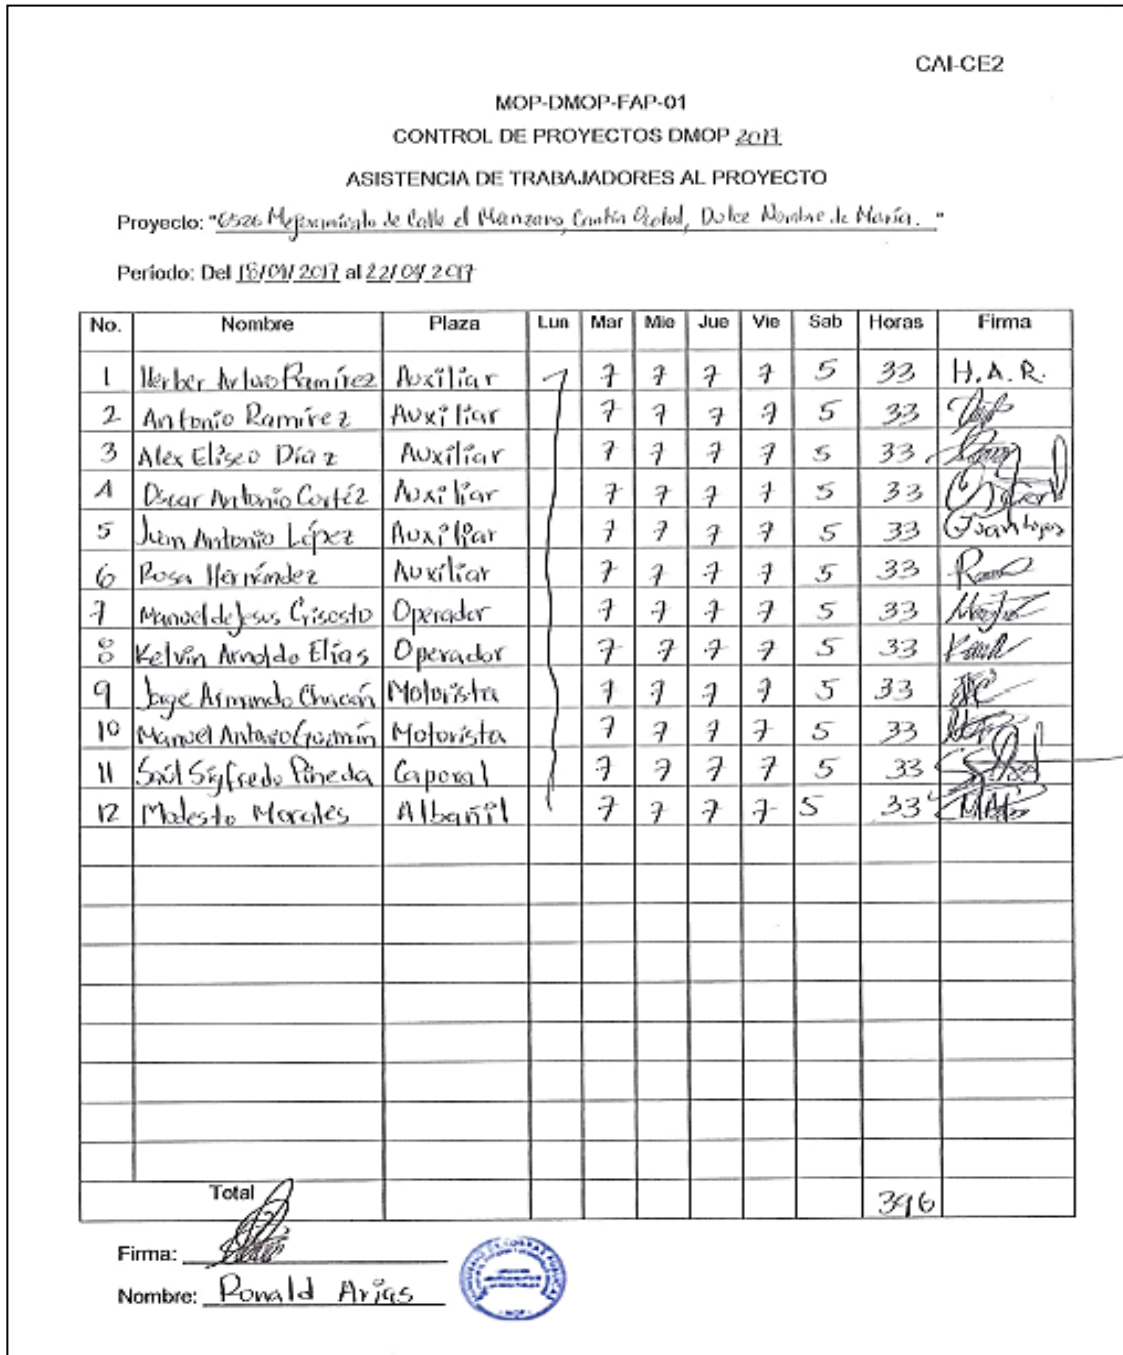 CAI-CE2
MOP-DMOP-FAP-01
CONTROL DE PROYECTOS DMOP 2017
ASISTENCIA DE TRABAJADORES AL PROYECTO
Proyecto: "6526 Mejoramiento de Calle el Manzano, Cantón Ocotal, Dulce Nombre de María. "
Período: Del 18/09/2017 al 22/09/2017
No. Nombre Plaza Lun Mar Mie Jue Vie Sab Horas Firma
1 Herber Arturo Ramírez Auxiliar 7 7 7 7 5 33 H.A.R.
2 Antonio Ramírez Auxiliar 7 7 7 7 5 33
3 Alex Eliseo Díaz Auxiliar 7 7 7 7 5 33
4 Oscar Antonio Cortéz Auxiliar 7 7 7 7 5 33
5 Juan Antonio López Auxiliar 7 7 7 7 5 33 Juan Lopez
6 Rosa Hernández Auxiliar 7 7 7 7 5 33
7 Manuel de Jesus Crisosto Operador 7 7 7 7 5 33
8 Kelvin Arnoldo Elías Operador 7 7 7 7 5 33
9 Jorge Armando Chacón Motorista 7 7 7 7 5 33
10 Manuel Antonio Guzmán Motorista 7 7 7 7 5 33
11 Saúl Sigfredo Pineda Caporal 7 7 7 7 5 33
12 Modesto Morales Albañil 7 7 7 7 5 33
Total 396
Firma:
Nombre: Ronald Arias